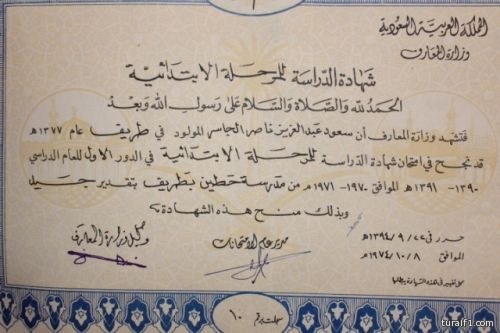 المملكة العربية السعودية
وزارة المعارف
شهادة الدراسة للمرحلة الابتدائية
الحمد لله والصلاة والسلام على رسول الله وبعد
فتشهد وزارة المعارف أن سعود عبدالعزيز ناصر الجاسر المولود في طريف عام ١٣٧٧هـ
قد نجح في امتحان شهادة الدراسة للمرحلة الابتدائية في الدور الأول للعام الدراسي
١٣٩٠-١٣٩١هـ الموافق ١٩٧٠-١٩٧١م من مدرسة حطين بطريف بتقدير جـيـل
وبذلك منح هذه الشهادة؛
حرر في ٢٢/٩/١٣٩٤هـ
الموافق ٨/١٠/١٩٧٤م
مدير عام الامتحانات
وكيل وزارة المعارف
كل تغيير في هذه الشهادة يبطلها
سجلت برقم ١٠
turaif1.com